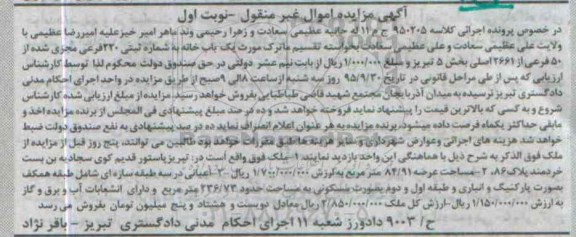 آگهی مزایده اموال غیر منقول -نوبت اول
در خصوص پرونده اجرائی کلاسه 950205 ج م 11 له حانیه عظیمی سعادت و زهرا رحیمی وند ماهر امیر خیز علیه امیررضا عظیمی با
ولایت علی عظیمی سعادت و علی عظیمی سعادت بخواسته تقسیم ماترک مورث یک باب خانه به شماره ثبتی 220 فرعی مجزی شده از
50 فرعی از 2661 اصلی بخش 5 تبریز و مبلغ 1/000/000 ریال از بابت نیم عشر دولتی در حق صندوق دولت محکوم لذا توسط کارشناس
ارزیابی که پس از طی مراحل قانونی در تاریخ 95/9/30 روز سه شنبه از ساعت 8 الی 9 صبح از طریق مزایده در واحد اجرای احکام مدنی
دادگستری تبریز نرسیده به میدان آذربایجان مجتمع شهید قاضی طباطبایی بفروش خواهد رسید. مزایده از مبلغ ارزیابی شده کارشناس
شروع و به کسی که بالاترین قیمت را پیشنهاد نماید فروخته خواهد شد و ده درصد مبلغ پیشنهادی فی المجلس از برنده مزایده اخذ و
مابقی حداکثر یکماه فرصت داده میشود، برنده مزایده به هر عنوان اعلام انصراف نماید ده در صد پیشنهادی به نفع صندوق دولت ضبط
خواهد شد. هزینه های اجرائی و عوارض شهرداری و سایر هزینه ها طبق مقررات خواهد بود. طالبین می توانند، پنج روز قبل از مزایده از
ملک فوق الذکر به شرح ذیل با هماهنگی این واحد بازدید نمایند. 1- پلاک فوق واقع است در: تبریز پاستور قدیم کوی سجادیه بن بست
خردمند پلاک 86، 2- مساحت عرصه 84/91 متر مربع به ارزش 1/700/000/000 ریال 3- اعیانی در سه طبقه سازه ای شامل طبقه همکف
بصورت پارکینگ و انباری و طبقه اول و دوم بصورت مسکونی به مساحت حدود 236/73 متر مربع و دارای انشعابات آب و برق و گاز
به ارزش 1/150/000/000 ریال -ارزش کل ملک 2/850/000/000 ریال معادل دویست و هشتاد و پنج میلیون تومان بفروش می رسد
ح/ 9003 دادورز شعبه 11 اجرای احکام مدنی دادگستری تبریز - باقر نژاد